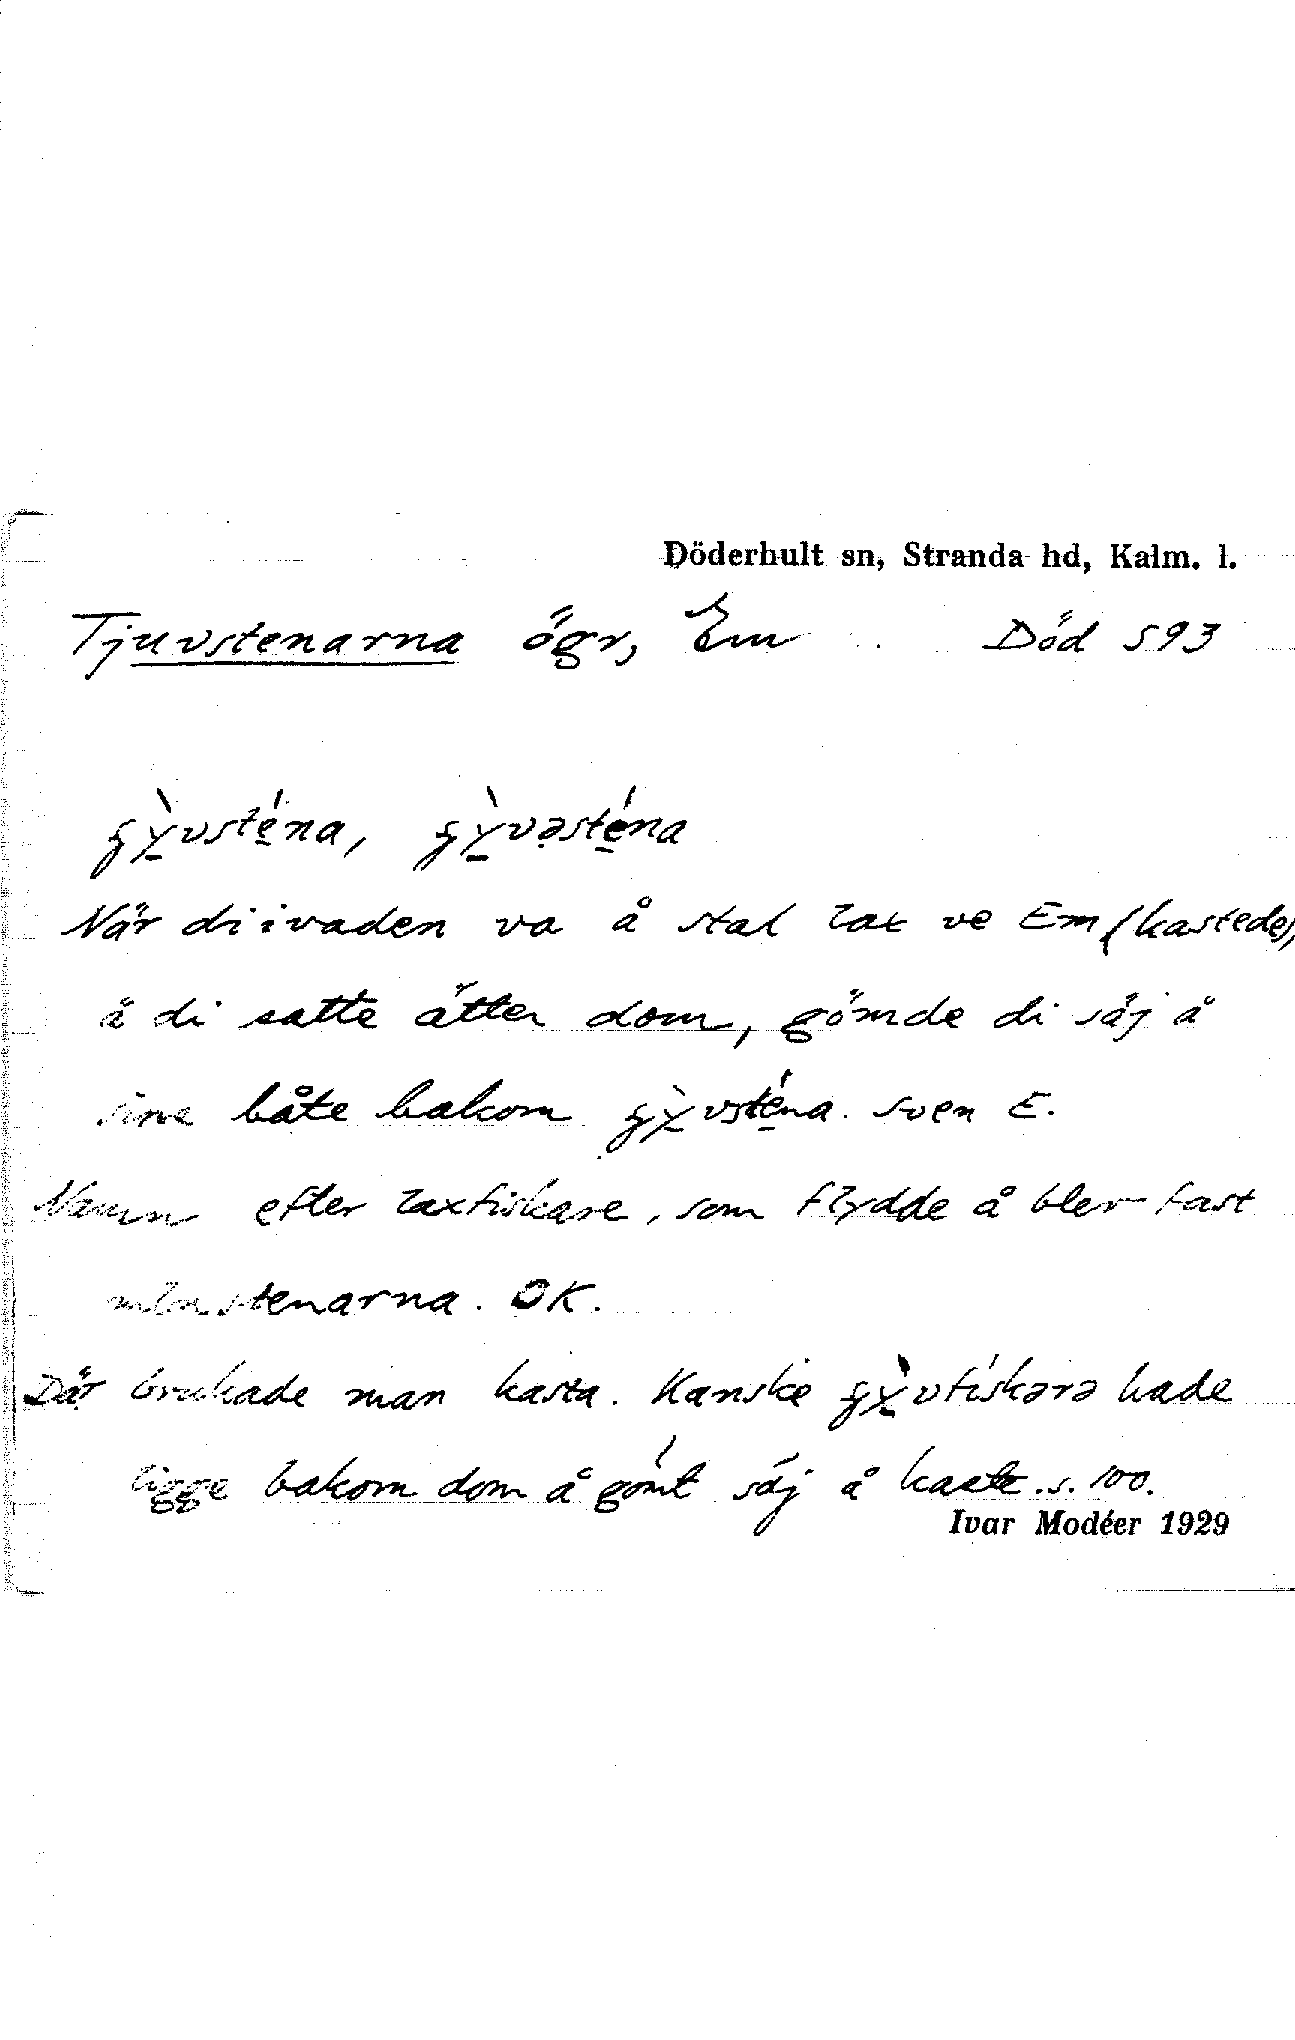 Döderhult sn, Stranda hd, Kalm. l.
Tjuvstenarna ögr, Em Död 593
När di ivaden va å stal lax ve Em (kastede),
å di satte ätter dom, gömde di säj å
sine båte bakom . Sven E.
Namn efter laxfiskare, som flydde å blev fast
mln stenarna. OK.
Där brukade man kasta. Kanske hade
ligge bakom dom å gömt säj å kaste. s. 100.
Ivar Modéer 1929